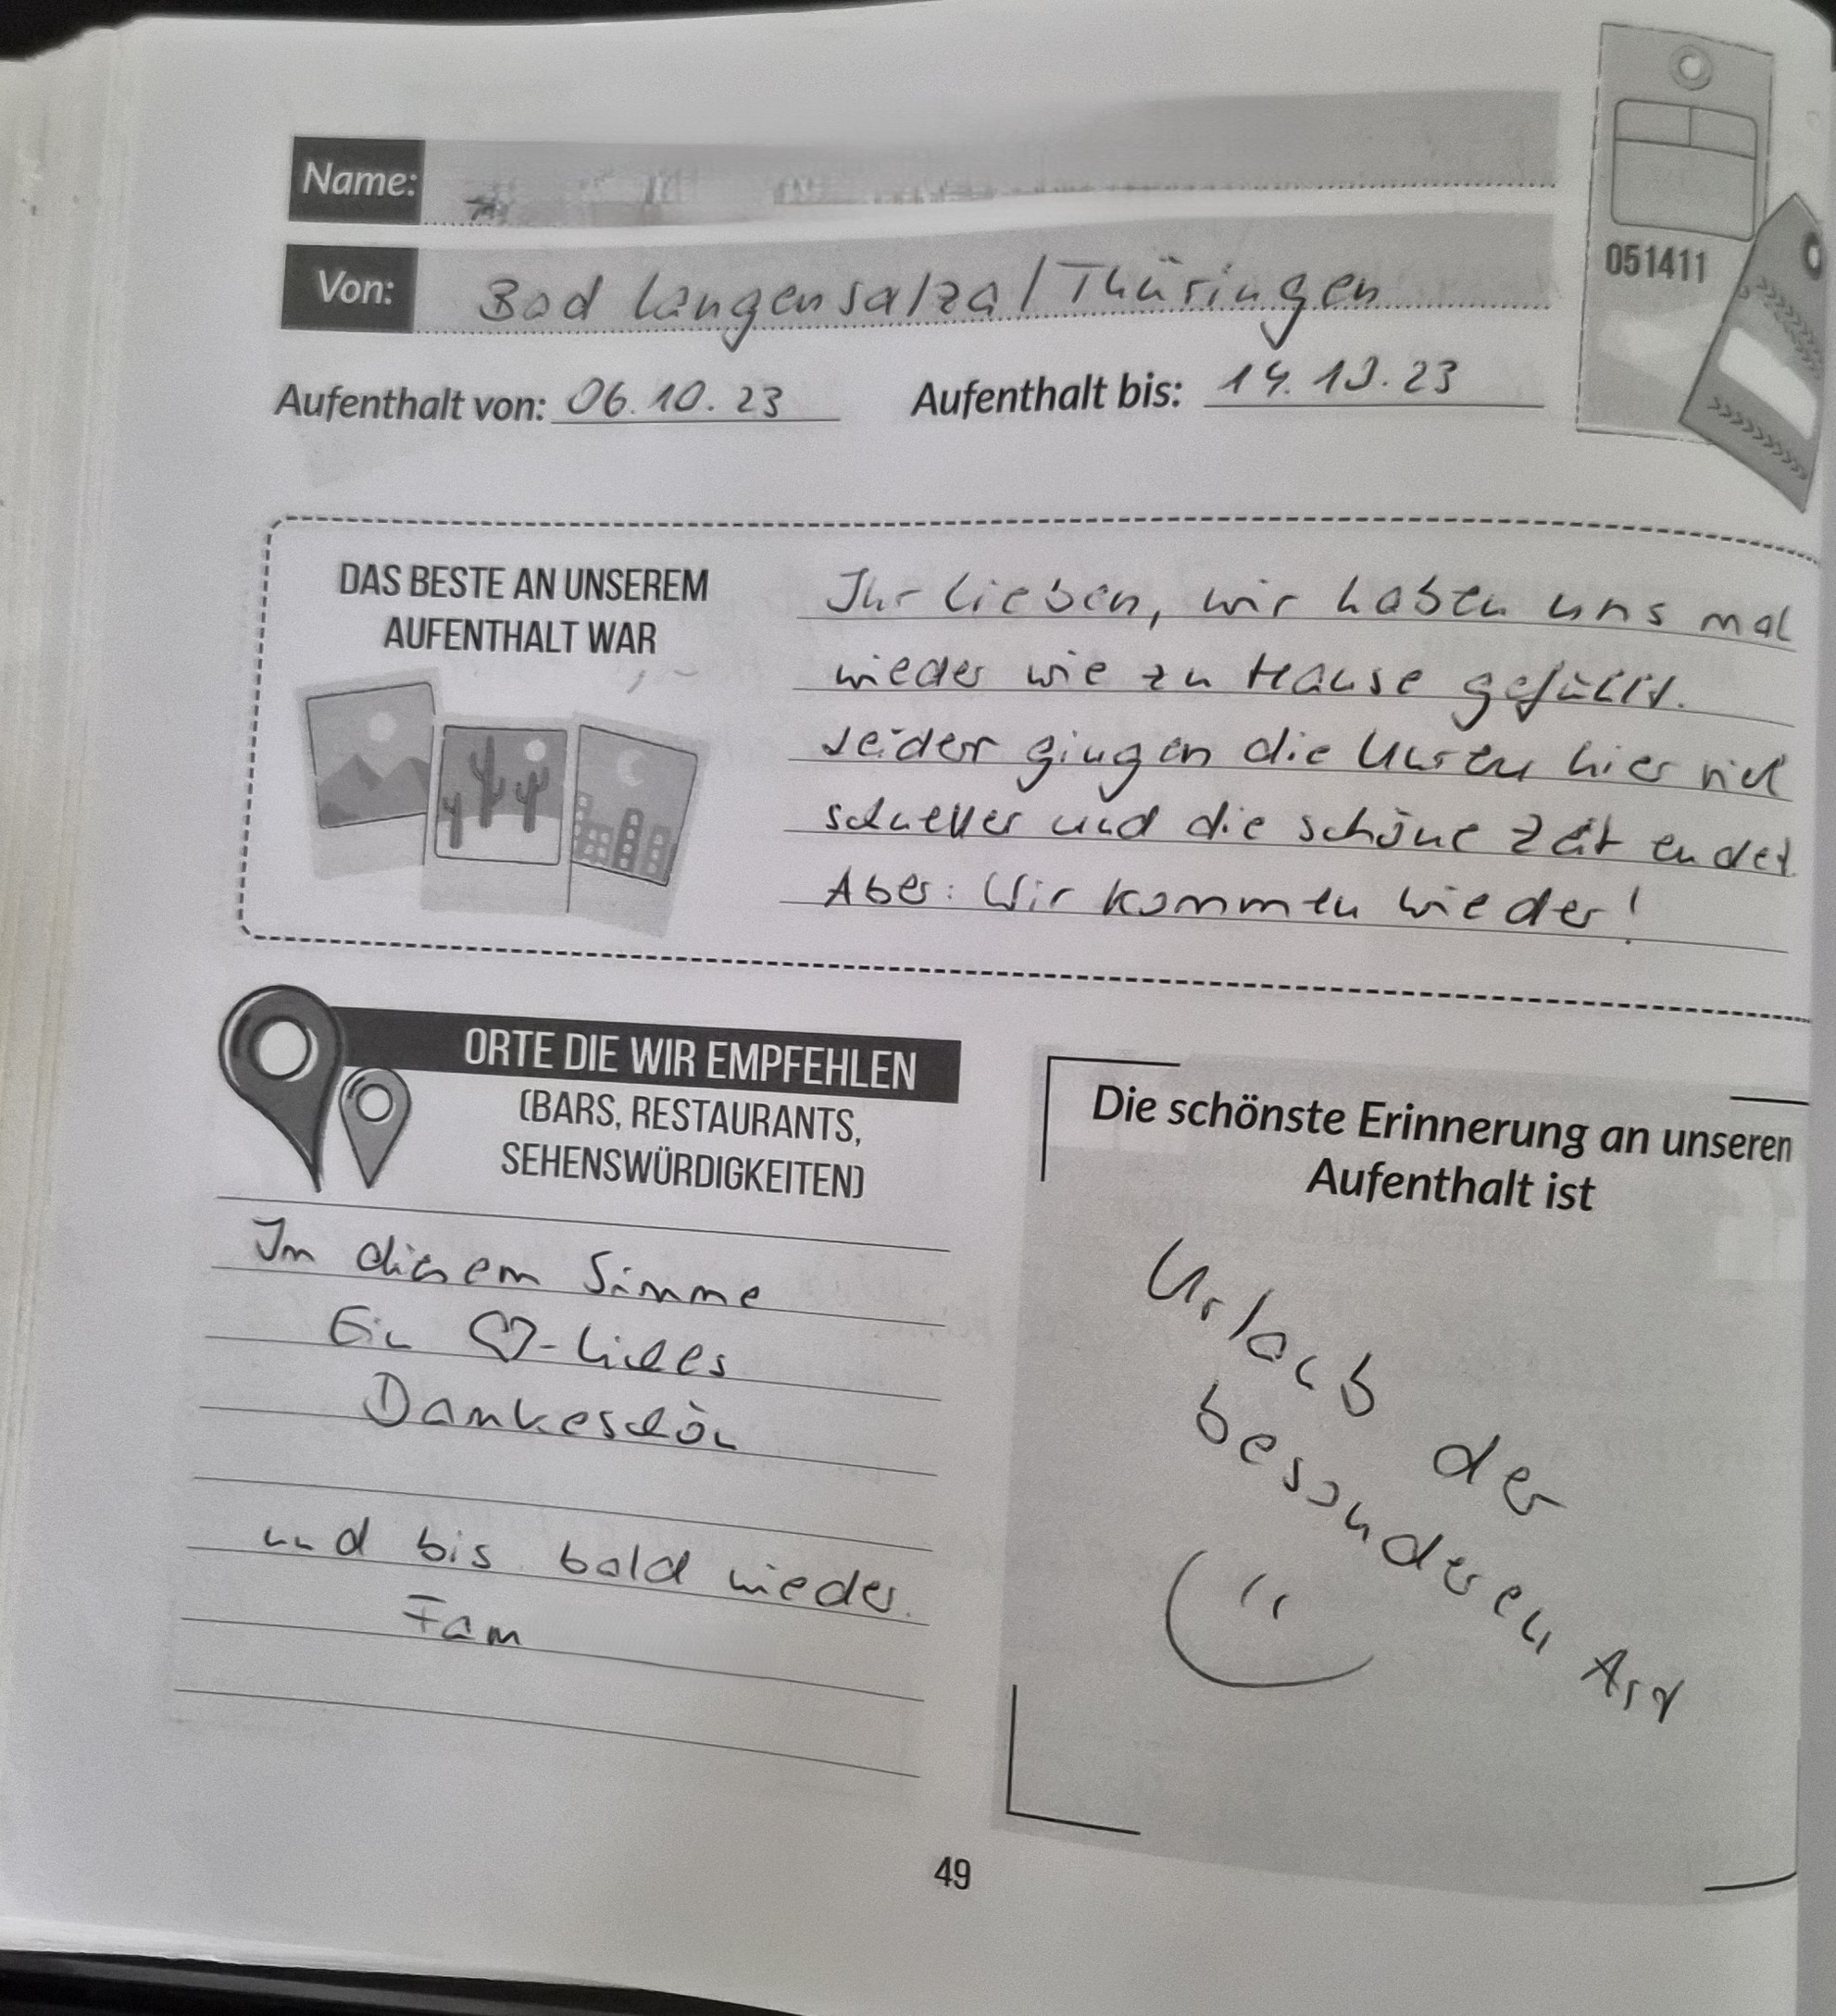 Name:
Von: Bad Langensalza/Thüringen
Aufenthalt von: 06.10.23 Aufenthalt bis: 14.10.23
051411
DAS BESTE AN UNSEREM
AUFENTHALT WAR
Ihr Lieben, wir haben uns mal
wieder wie zu Hause gefühlt.
Leider gingen die Uhren hier viel
schneller und die schöne Zeit endet.
Aber: Wir kommen wieder!
ORTE DIE WIR EMPFEHLEN
(BARS, RESTAURANTS,
SEHENSWÜRDIGKEITEN)
In diesem Simme
Ein ♡-liches
Dankeschön
und bis bald wieder.
Fam
Die schönste Erinnerung an unseren
Aufenthalt ist
Urlaub der
besonderen Art
49